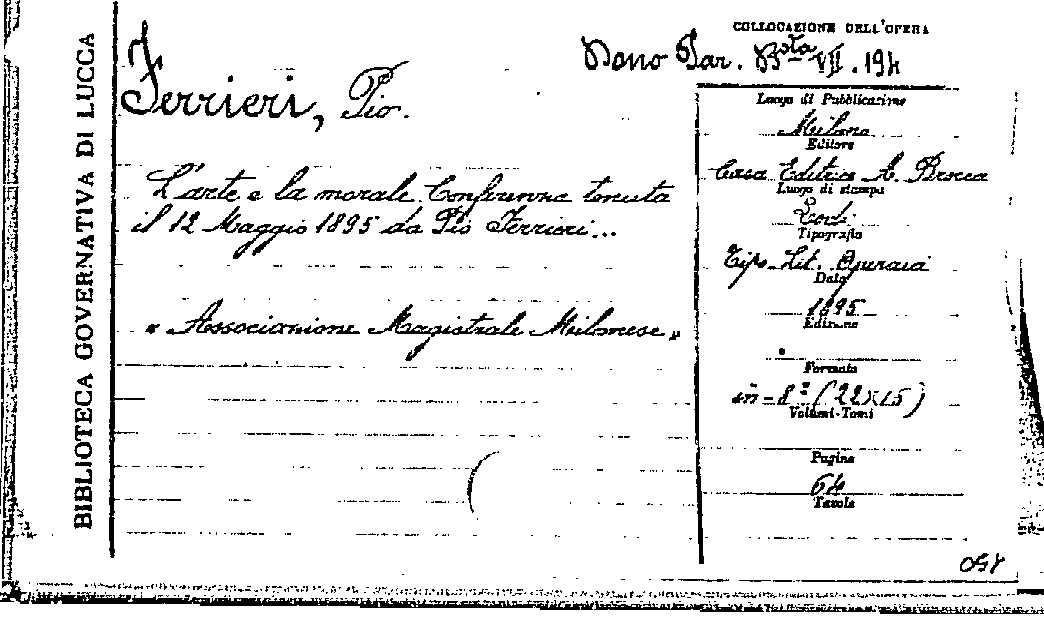 BIBLIOTECA GOVERNATIVA DI LUCCA
COLLOCAZIONE DELL'OPERA
Dono Par. Bsta VII. 194
Ferrieri, Pio.
L'arte e la morale Conferenza tenuta
il 12 Maggio 1895 da Pio Ferrieri...
« Associazione Magistrale Milanese »
Luogo di Pubblicazione
Milano
Editore
Casa Editrice A. Brocca
Luogo di stampa
Todi
Tipografia
Tip. Lit. Operaia
Data
1895
Edizione
Formato
in-8° (22x15)
Volumi-Tomi
Pagine
64
Tavole